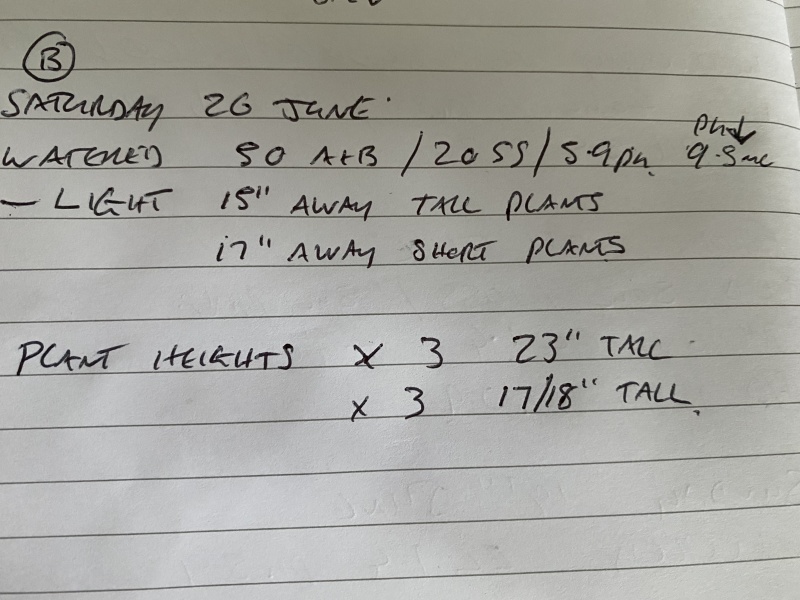 B
SATURDAY 26 JUNE.
PH↓
WATERED 50 A+B / 20 SS / 5.9 PH 9.5ML
— LIGHT 15" AWAY TALL PLANTS
17" AWAY SHORT PLANTS
PLANT HEIGHTS x 3 23" TALL
x 3 17/18" TALL.